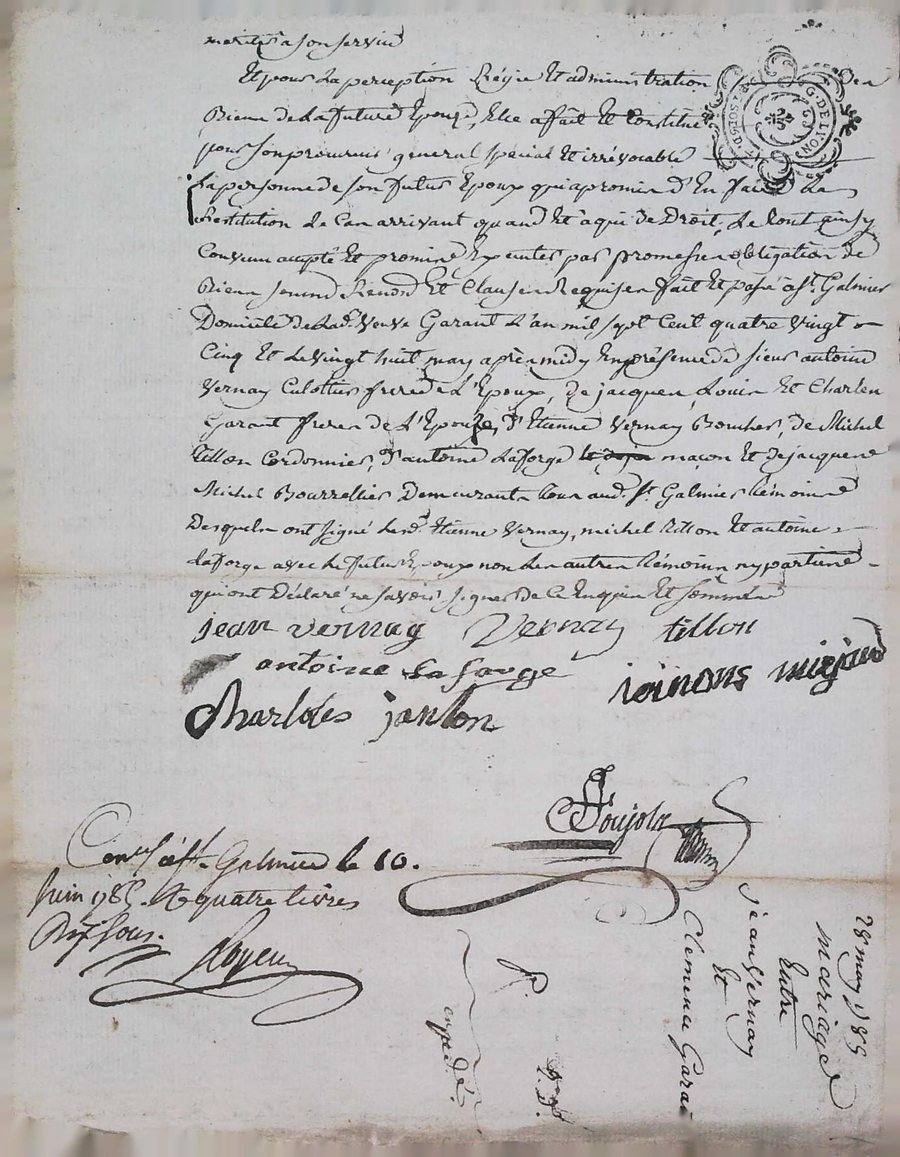 a son servir
Et pour La perception Régie Et administration Des
Biens de La future Epouze, Elle a fait Et Constitué
pour son procureur general special Et irrévocable
La personne de son futur Epoux qui a promis d'En faire La
Restitution Le Cas arrivant quand Et a qui de Droit, Le tout ainsy
Convenu accepté Et promis par promesses obligation de
Biens Renond Et Clauses Requises fait Et passé a St. Galmier
Domicile de Lad. Veuve Garant L'an mil sept Cent quatre vingt
Cinq Et Le vingt huit may après midy En présence de sieur antoine
Vernay Culottier frere de L'Epoux, de jacques, Louis Et Charles
Garant freres de L'Epouze, d'Etienne Vernay Boucher, de Michel
tillon Cordonnier, d'antoine Laforge maçon Et de jacques
Michel Bourrellier Demeurants tous aud. St. Galmier témoins
Desquels ont signé Lesd. Etienne Vernay, michel tillon Et antoine
Laforge avec Le futur Epoux non Les autres témoins ny parties
qui ont Déclaré ne savoir signer de Ce Enquis Et sommés
jean vernay Vernay tillon
antoine La farge
Charlôes janton
G. DE LYON
Poujolx
St. Galmier le 10.
Juin 1785. R quatre livres
Dix sous.
Royer
28 may 1785
mariage
Entre
jean Vernay
Et
Clemence Gara
expédié.